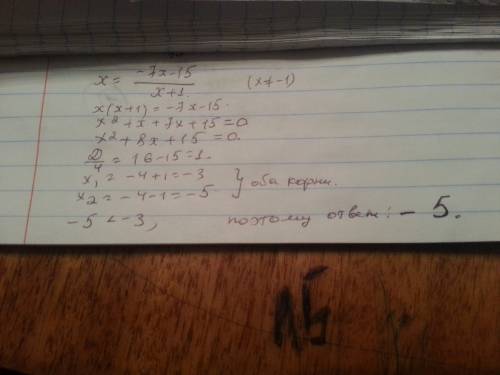 x = \frac{-7x-15}{x+1} (x≠-1)
x(x+1) = -7x-15.
x²+x+7x+15=0
x²+8x+15=0.
\frac{D}{4} = 16-15=1.
x₁ = -4+1=-3
x₂ = -4-1=-5 } оба корни.
-5 < -3, поэтому ответ: -5.